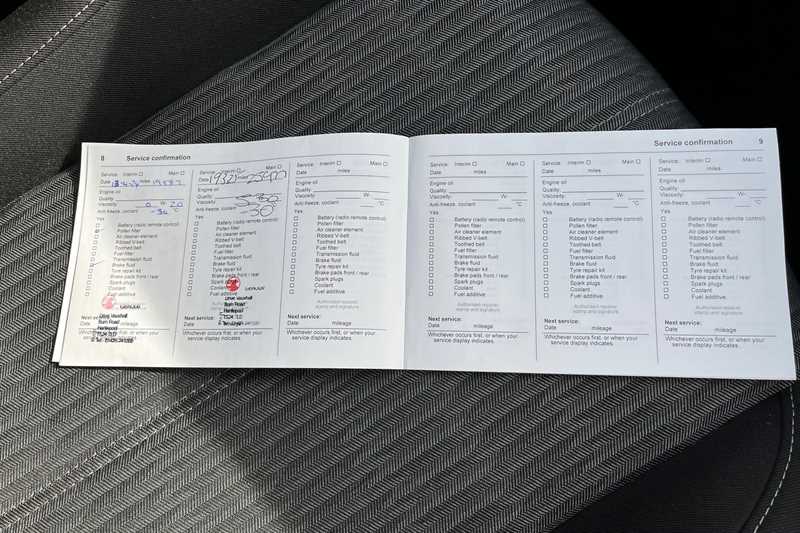 8 Service confirmation
Service: Interim Main
Date miles
Engine oil
Quality
Viscosity: 0 W- 20
Anti-freeze, coolant
-36 °C
Yes
Battery (radio remote control)
Pollen filter
Air cleaner element
Ribbed V-belt
Toothed belt
Fuel filter
Transmission fluid
Brake fluid
Tyre repair kit
Brake pads front / rear
Spark plugs
Coolant
Fuel additive
Drive Vauxhall
Burn Road
Hartlepool
Next service:
Date mileage
Whichever occurs first, or when your
service display indicates.
Service: Interim Main
Date miles
Engine oil
Quality
Viscosity:
Anti-freeze, coolant
Yes
Battery (radio remote control)
Pollen filter
Air cleaner element
Ribbed V-belt
Toothed belt
Fuel filter
Transmission fluid
Brake fluid
Tyre repair kit
Brake pads front / rear
Spark plugs
Coolant
Fuel additive
Drive Vauxhall
Burn Road
Hartlepool
Next service:
Date mileage
Whichever occurs first, or when your
service display indicates.
Service: Interim Main
Date miles
Engine oil
Quality
Viscosity: W-
Anti-freeze, coolant °C
Yes
Battery (radio remote control)
Pollen filter
Air cleaner element
Ribbed V-belt
Toothed belt
Fuel filter
Transmission fluid
Brake fluid
Tyre repair kit
Brake pads front / rear
Spark plugs
Coolant
Fuel additive
Authorised repairer
stamp and signature
Next service:
Date mileage
Whichever occurs first, or when your
service display indicates.
Service confirmation 9
Service: Interim Main
Date miles
Engine oil
Quality
Viscosity: W-
Anti-freeze, coolant °C
Yes
Battery (radio remote control)
Pollen filter
Air cleaner element
Ribbed V-belt
Toothed belt
Fuel filter
Transmission fluid
Brake fluid
Tyre repair kit
Brake pads front / rear
Spark plugs
Coolant
Fuel additive
Authorised repairer
stamp and signature
Next service:
Date mileage
Whichever occurs first, or when your
service display indicates.
Service: Interim Main
Date miles
Engine oil
Quality
Viscosity: W-
Anti-freeze, coolant °C
Yes
Battery (radio remote control)
Pollen filter
Air cleaner element
Ribbed V-belt
Toothed belt
Fuel filter
Transmission fluid
Brake fluid
Tyre repair kit
Brake pads front / rear
Spark plugs
Coolant
Fuel additive
Authorised repairer
stamp and signature
Next service:
Date mileage
Whichever occurs first, or when your
service display indicates.
Service: Interim Main
Date miles
Engine oil
Quality
Viscosity: W-
Anti-freeze, coolant °C
Yes
Battery (radio remote control)
Pollen filter
Air cleaner element
Ribbed V-belt
Toothed belt
Fuel filter
Transmission fluid
Brake fluid
Tyre repair kit
Brake pads front / rear
Spark plugs
Coolant
Fuel additive
Authorised repairer
stamp and signature
Next service:
Date mileage
Whichever occurs first, or when your
service display indicates.